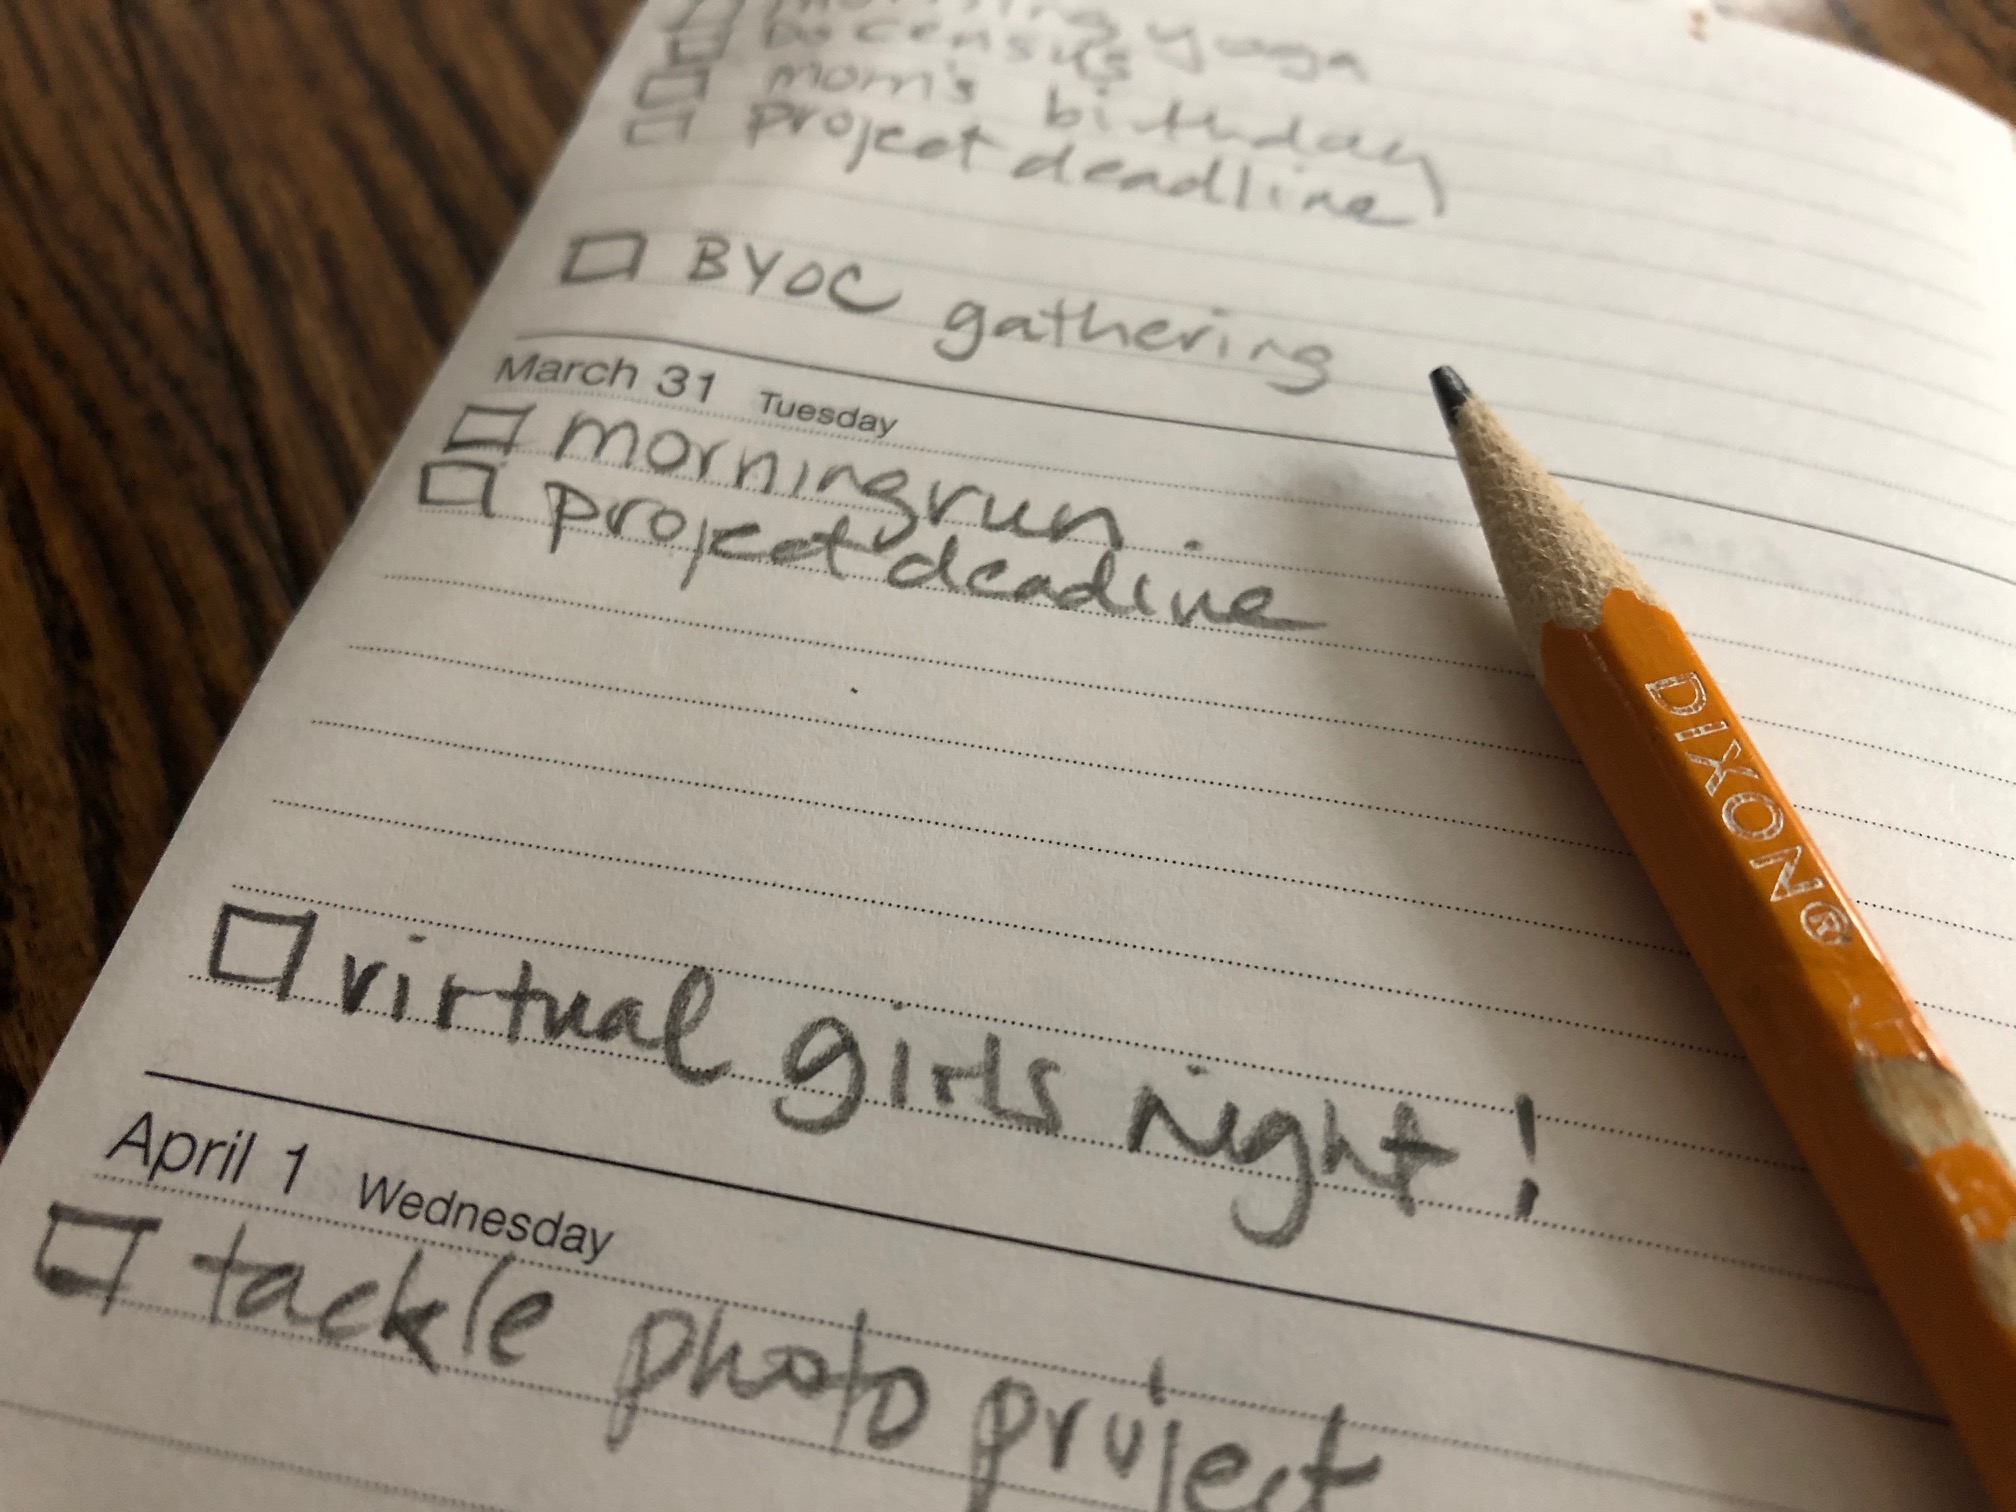 morning yoga
Do census
mom's birthday
project deadline
BYOC gathering
March 31 Tuesday
morning run
project deadine
virtual girls night!
April 1 Wednesday
tackle photo project
DIXON®